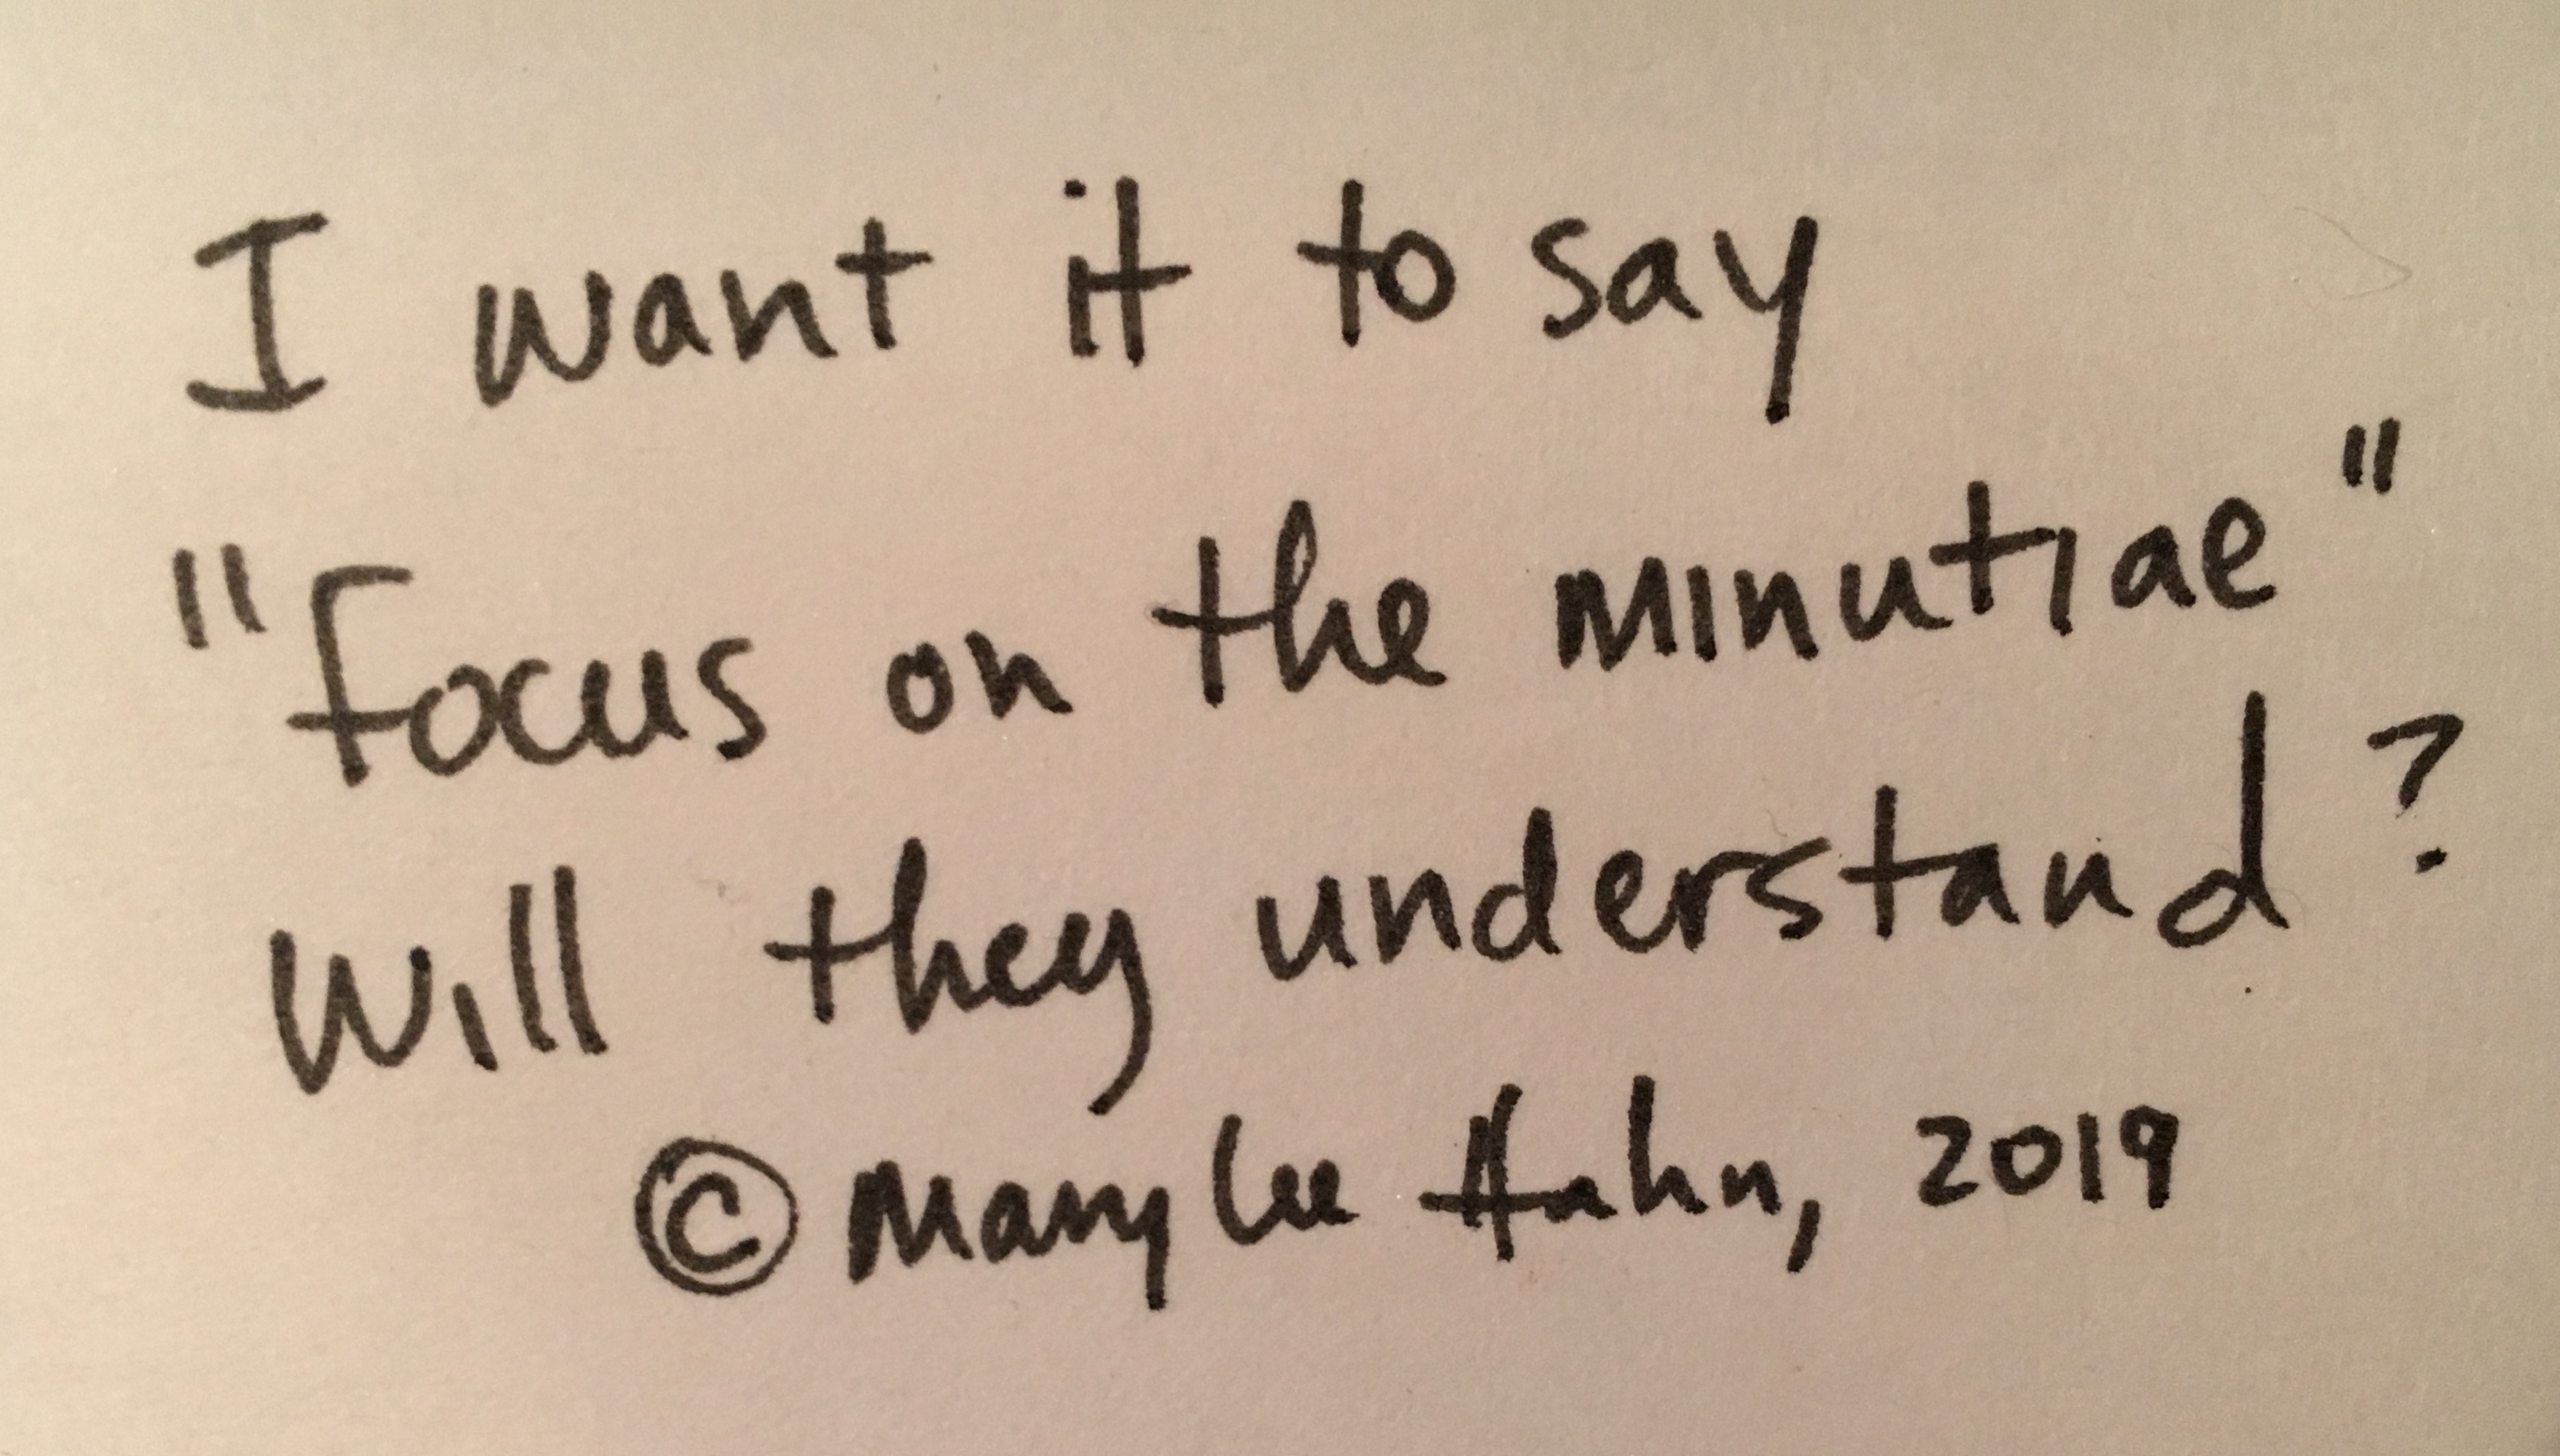 I want it to say
"Focus on the minutiae"
Will they understand?
© Mary Lee Hahn, 2019